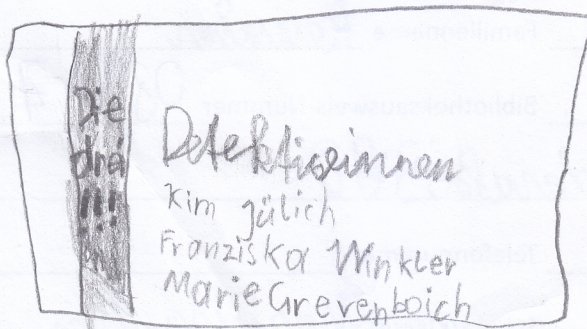 Die
drei
!!!
Detektivinnen
Kim Jülich
Franziska Winkler
Marie Grevenboich